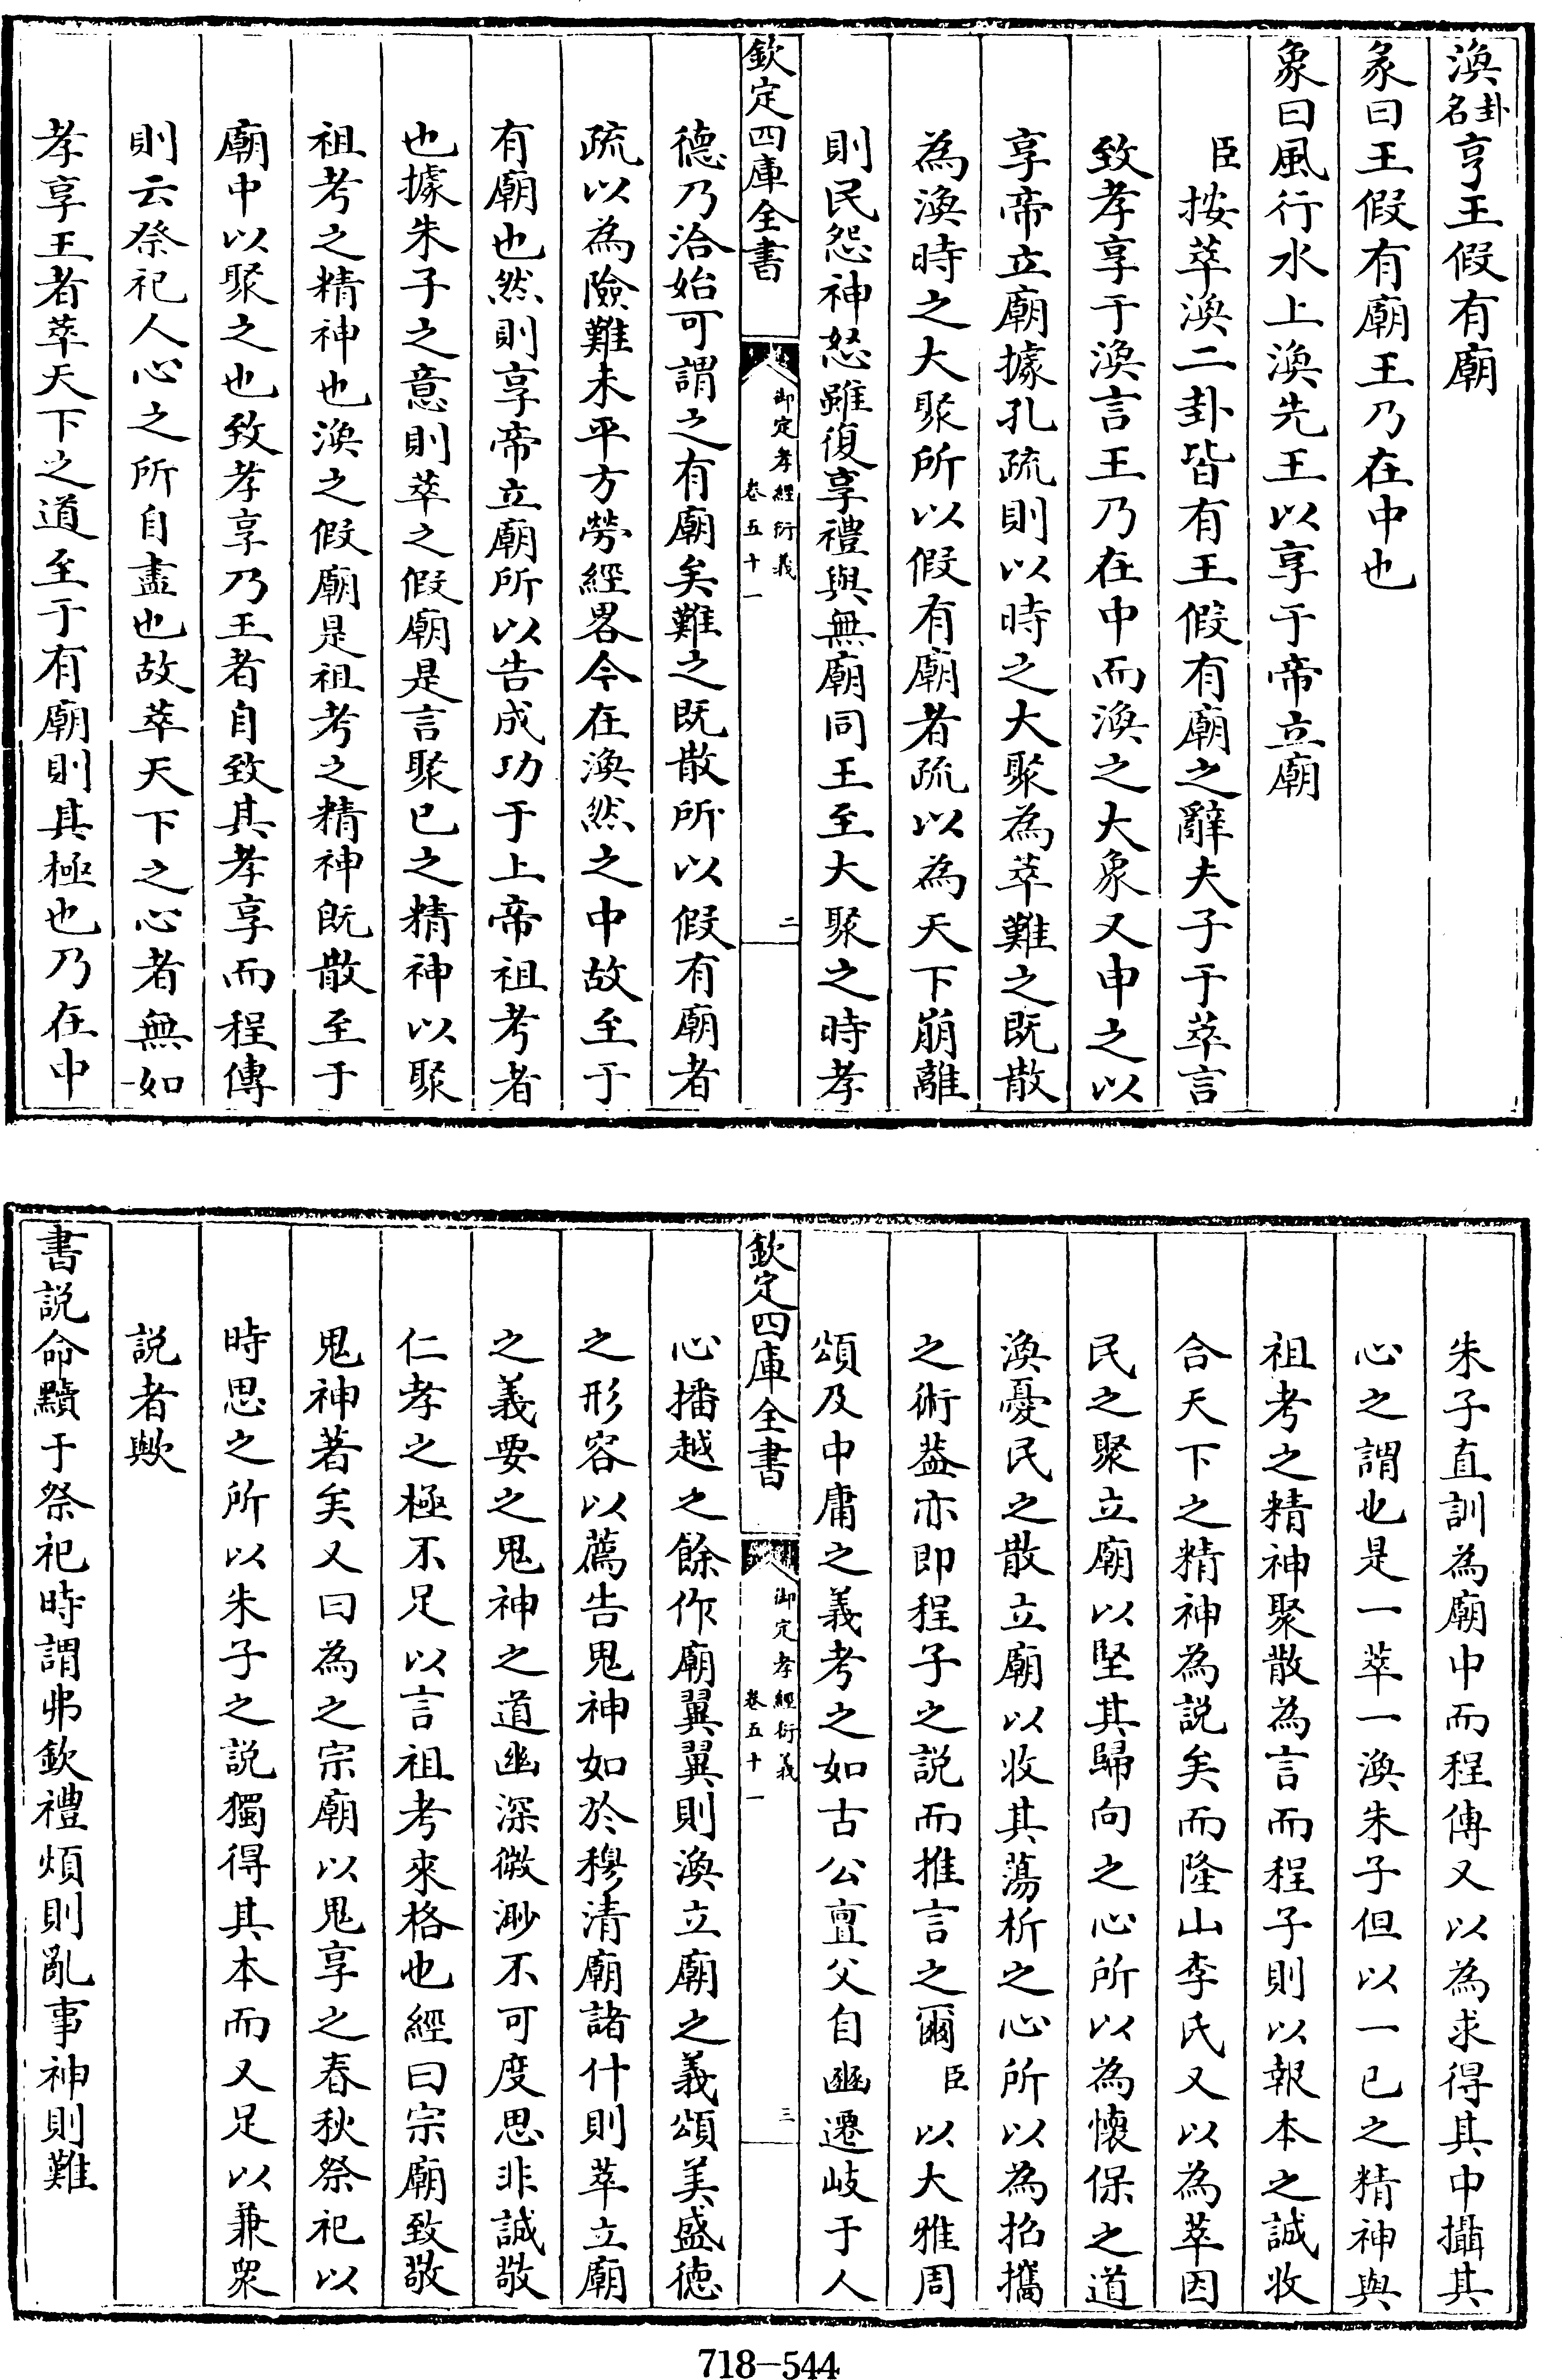 渙卦名亨王假有廟
彖曰王假有廟王乃在中也
象曰風行水上渙先王以享于帝立廟
臣按萃渙二卦皆有王假有廟之辭夫子于萃言
致孝享于渙言王乃在中而渙之大象又申之以
享帝立廟據孔疏則以時之大聚為萃難之既散
為渙時之大聚所以假有廟者疏以為天下崩離
則民怨神怒雖復享禮與無廟同王至大聚之時孝
欽定四庫全書
御定孝經衍義
卷五十一
二
德乃洽始可謂之有廟矣難之既散所以假有廟者
疏以為險難未平方勞經畧今在渙然之中故至于
有廟也然則享帝立廟所以告成功于上帝祖考者
也據朱子之意則萃之假廟是言聚已之精神以聚
祖考之精神也渙之假廟是祖考之精神既散至于
廟中以聚之也致孝享乃王者自致其孝享而程傳
則云祭祀人心之所自盡也故萃天下之心者無如
孝享王者萃天下之道至于有廟則其極也乃在中
朱子直訓為廟中而程傳又以為求得其中攝其
心之謂也是一萃一渙朱子但以一已之精神與
祖考之精神聚散為言而程子則以報本之誠收
合天下之精神為説矣而隆山李氏又以為萃因
民之聚立廟以堅其歸向之心所以為懷保之道
渙憂民之散立廟以收其蕩析之心所以為招攜
之術葢亦即程子之説而推言之爾臣以大雅周
頌及中庸之義考之如古公亶父自豳遷岐于人
欽定四庫全書
御定孝經衍義
卷五十一
三
心播越之餘作廟翼翼則渙立廟之義頌美盛徳
之形容以薦告鬼神如於穆清廟諸什則萃立廟
之義要之鬼神之道幽深微渺不可度思非誠敬
仁孝之極不足以言祖考來格也經曰宗廟致敬
鬼神著矣又曰為之宗廟以鬼享之春秋祭祀以
時思之所以朱子之説獨得其本而又足以兼衆
説者歟
書説命黷于祭祀時謂弗欽禮煩則亂事神則難
718-544